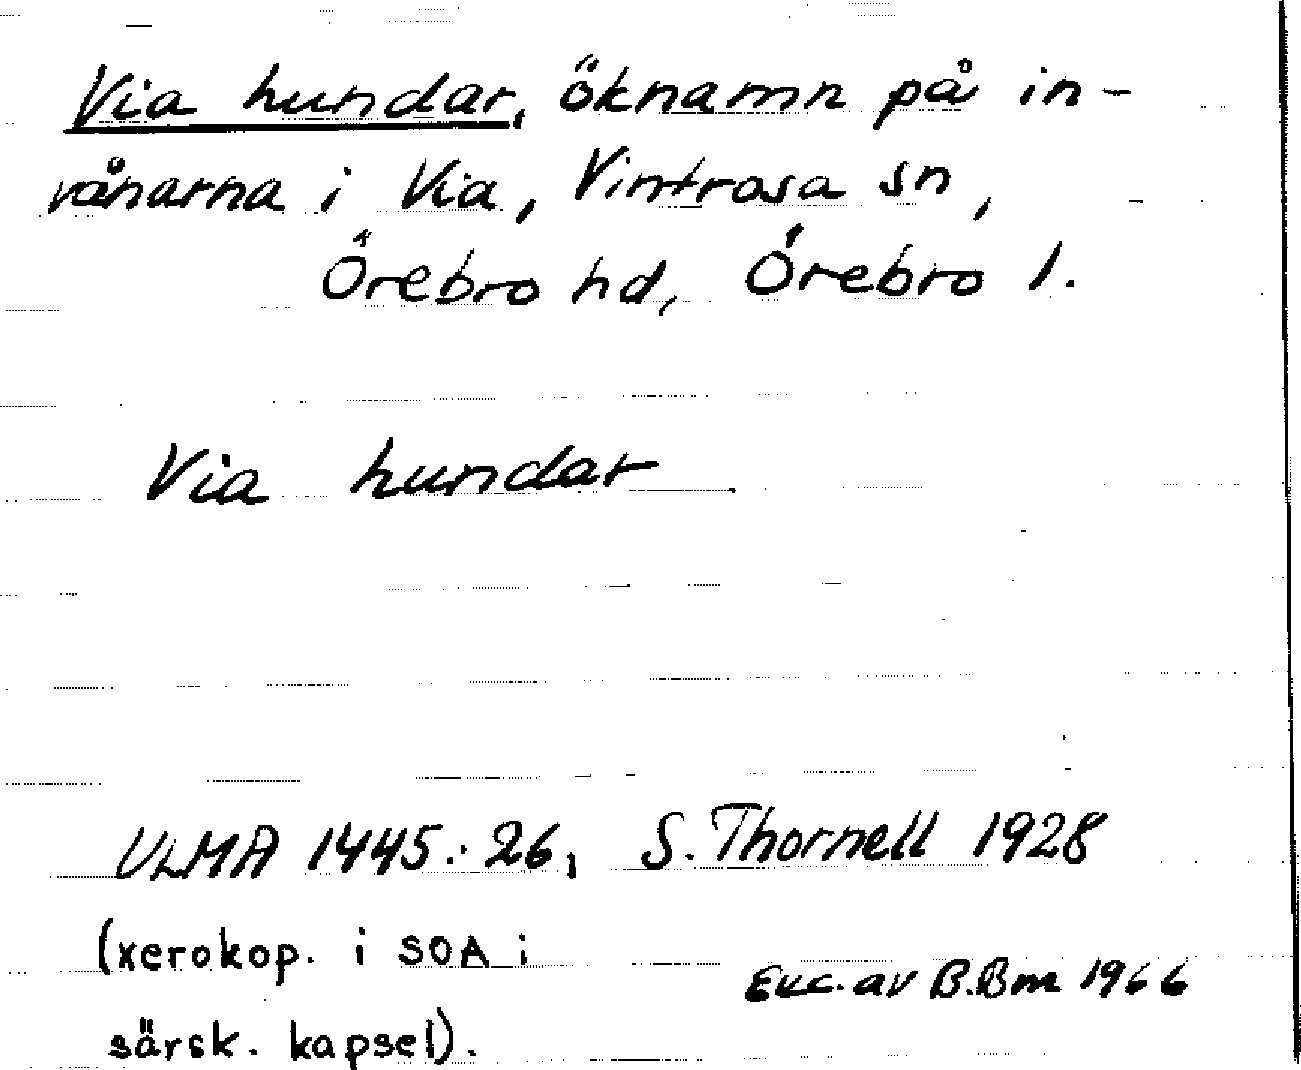 Via hundar, öknamn på in-
vånarna i Via, Vintrosa sn,
Örebro hd, Örebro l.
Via hundar
ULMA 1445:26, S. Thornell 1928
(xerokop. i SOA i
särsk. kapsel).
Exc. av B.Bm 1966